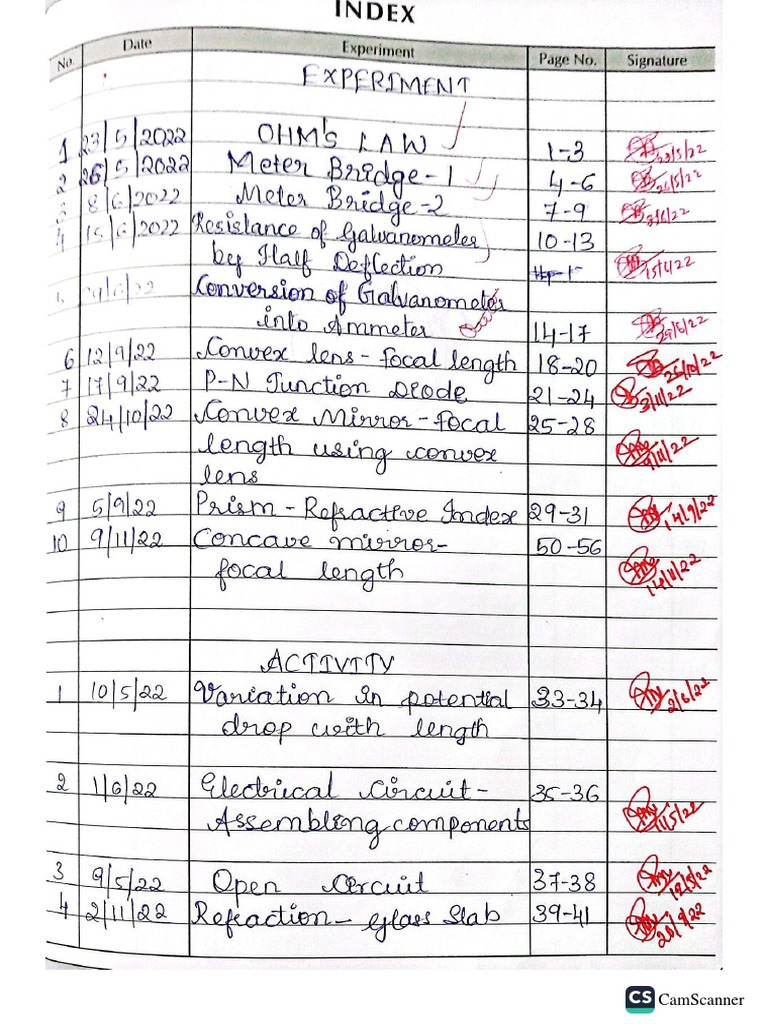 INDEX
No. Date Experiment Page No. Signature
EXPERIMENT
1 23/5/2022 OHM'S LAW 1-3 23/5/22
2 26/5/2022 Meter Bridge-1 4-6 26/5/22
3 8/6/2022 Meter Bridge-2 7-9 8/6/22
4 15/6/2022 Resistance of Galvanometer 10-13
by Half Deflection 15/6/22
Conversion of Galvanometer
into Ammeter 14-17 29/6/22
6 12/9/22 Convex lens-focal length 18-20 26/10/22
7 17/9/22 P-N Junction Diode 21-24 3/11/22
8 24/10/22 Convex Mirror-focal 25-28
length using convex 9/11/22
lens
9 5/9/22 Prism-Refractive Index 29-31 14/9/22
10 9/11/22 Concave mirror- 50-56
focal length 14/11/22
ACTIVITY
1 10/5/22 Variation in potential 33-34 2/6/22
drop with length
2 1/6/22 Electrical Circuit- 35-36
Assembling components 11/5/22
3 9/5/22 Open circuit 37-38 12/5/22
4 2/11/22 Refraction-Glass Slab 39-41
CS CamScanner